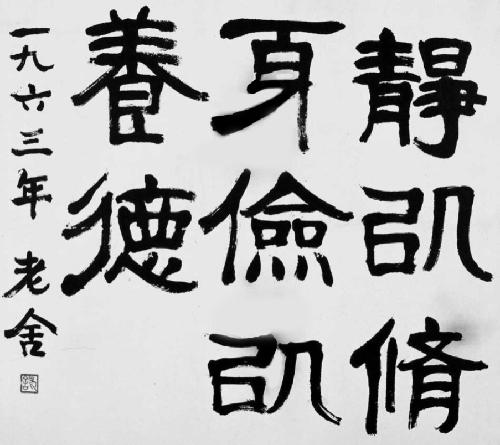 靜以脩
身儉以
養德
一九六三年 老舍